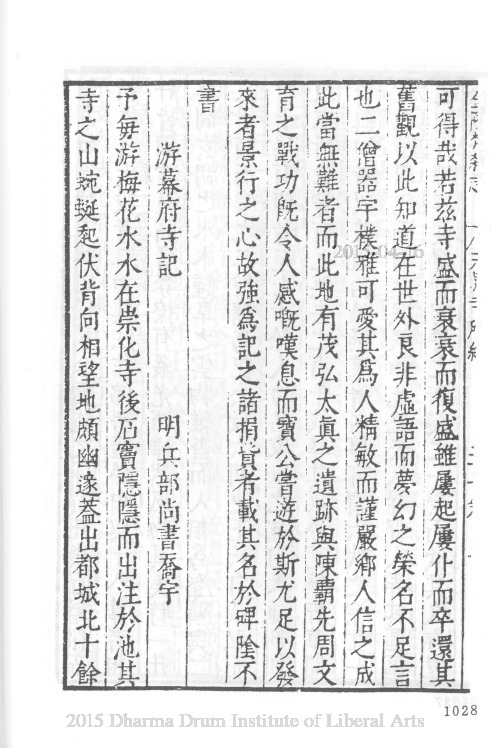 可得哉若茲寺盛而衰衰而復盛雖屢起屢仆而卒還其
舊觀以此知道在世外良非虛語而夢幻之榮名不足言
也二僧器宇樸雅可愛其爲人精敏而謹嚴鄉人信之成
此當無難者而此地有茂弘太眞之遺跡與陳霸先周文
育之戰功旣令人感慨嘆息而寶公嘗遊於斯尤足以發
來者景行之心故強爲記之諸捐貲者載其名於碑陰不
書
游幕府寺記
明兵部尚書喬宇
予每游梅花水水在崇化寺後石竇隱隱而出注於池其
寺之山蜿蜒起伏背向相望地頗幽邃蓋出都城北十餘
1028
2015 Dharma Drum Institute of Liberal Arts